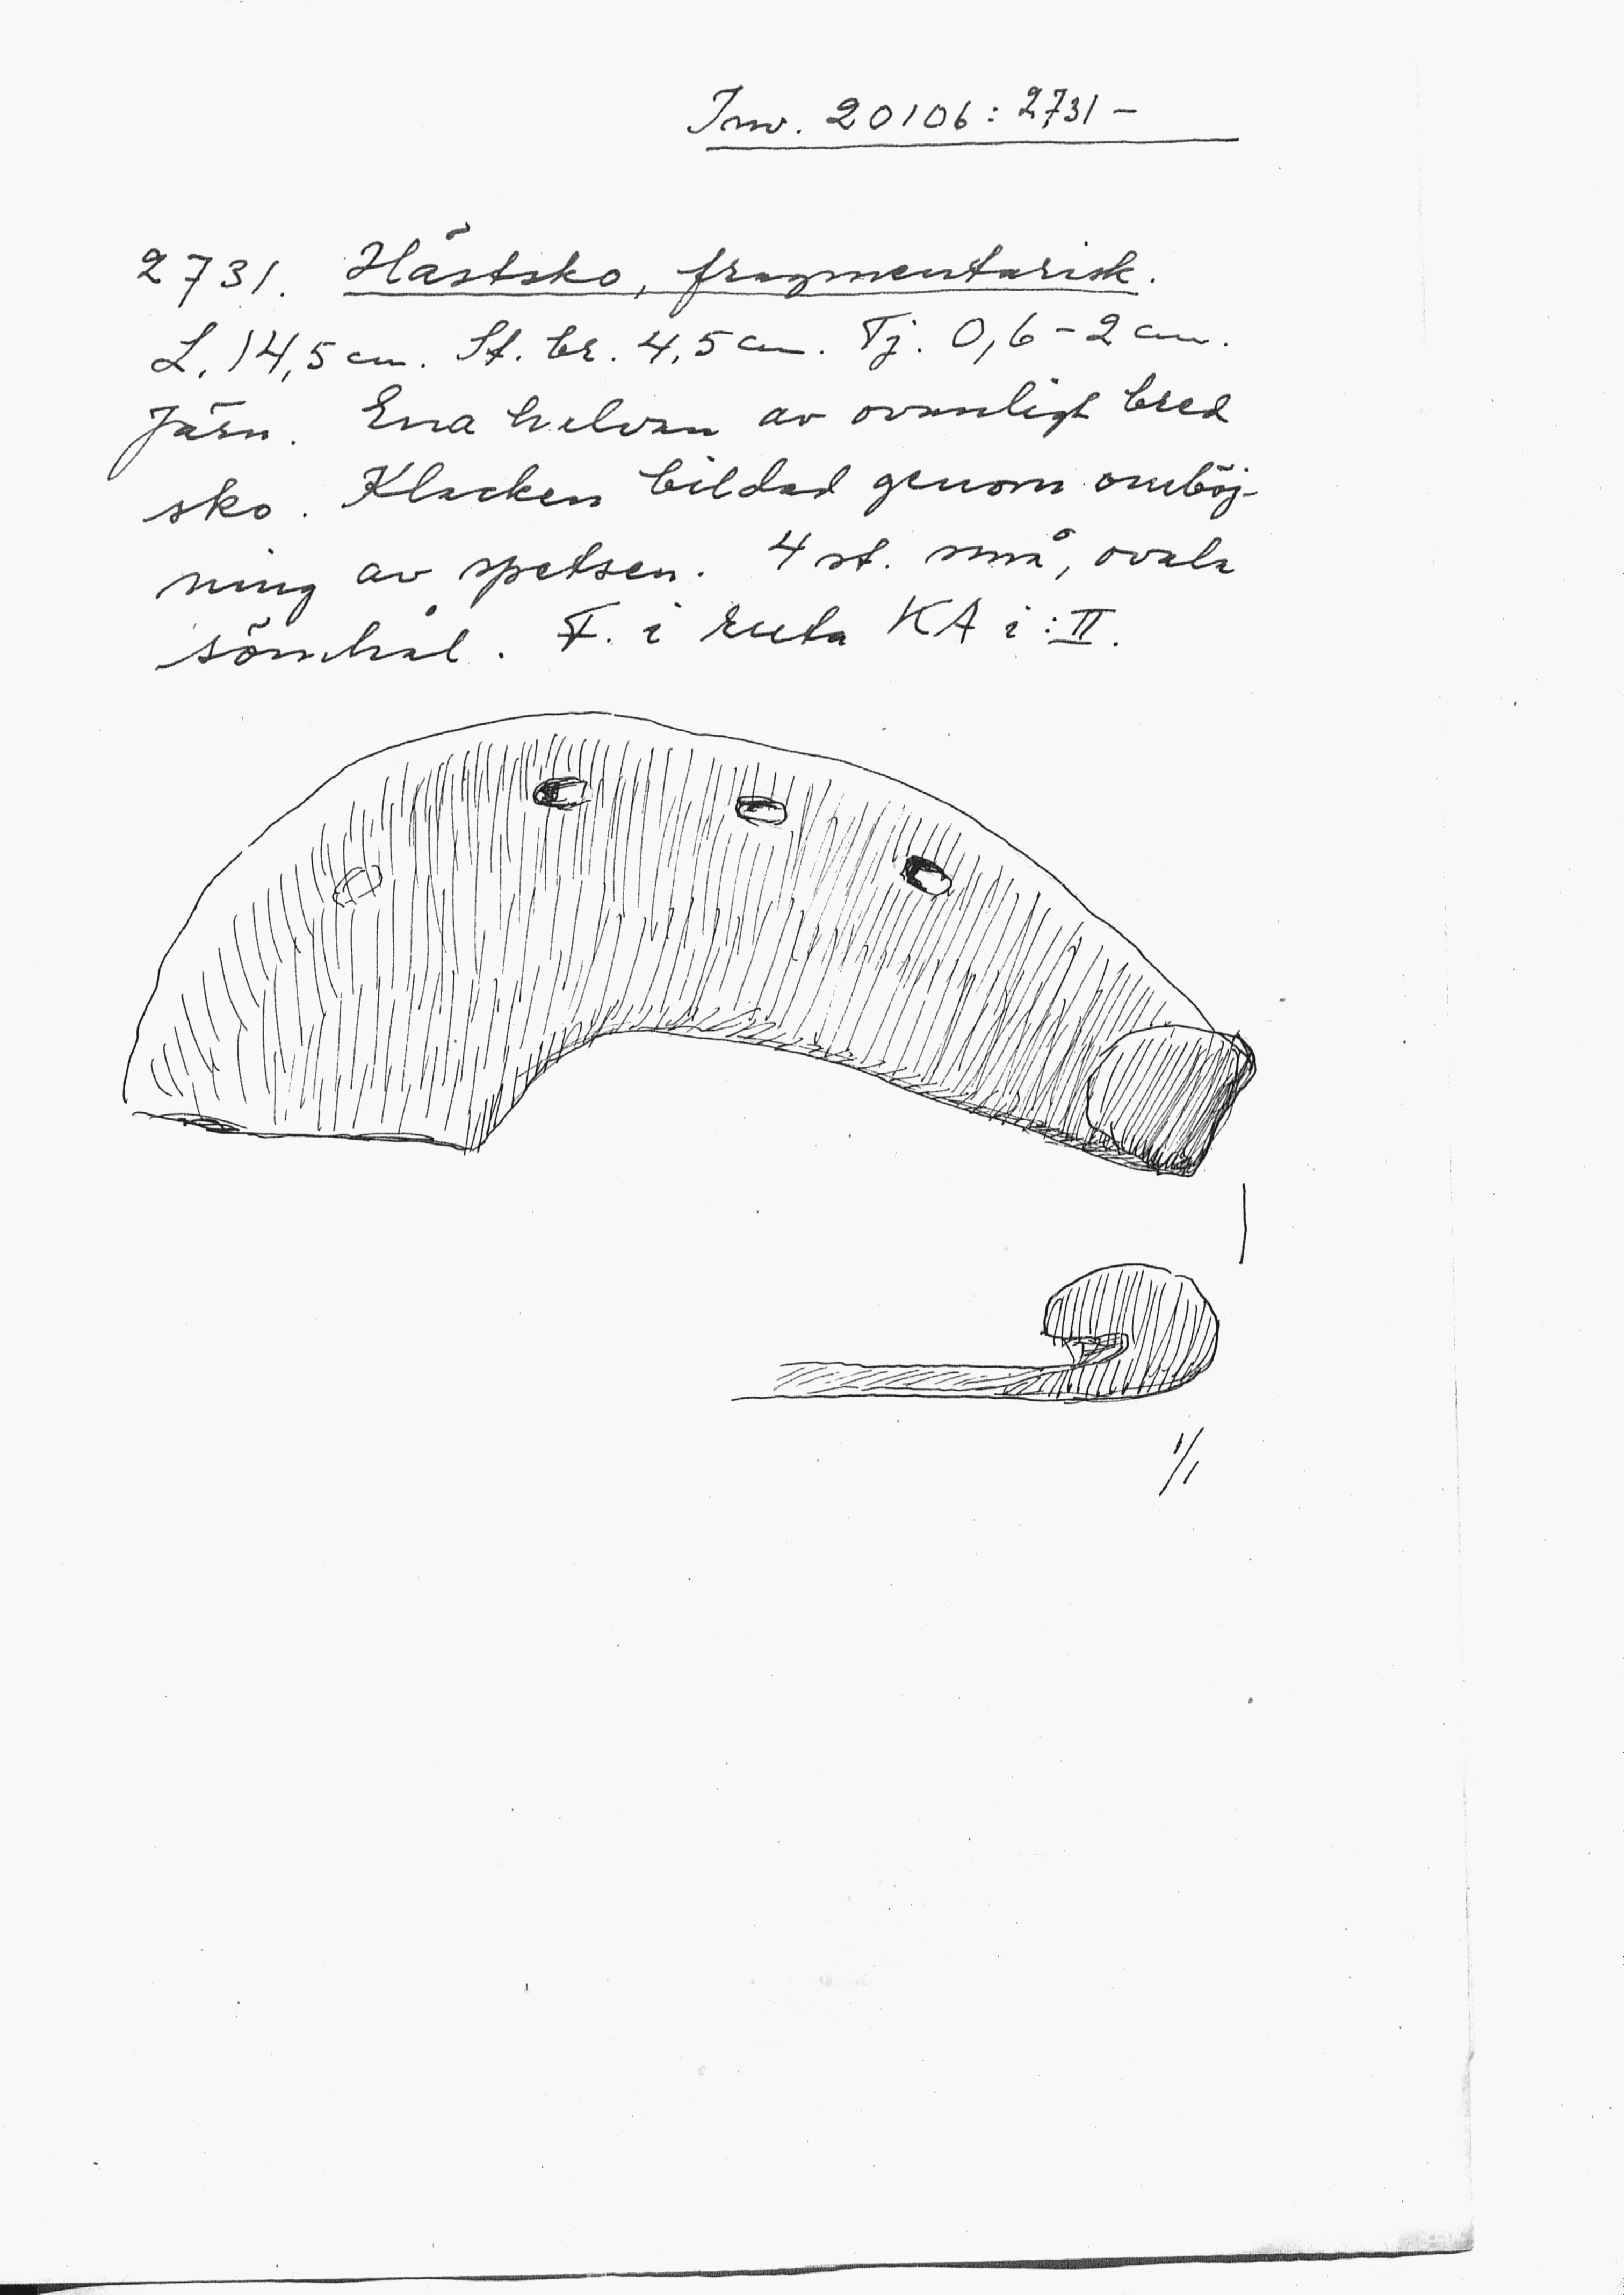 Inv. 20106: 2731 –
2731. Hästsko, fragmentarisk.
L. 14,5 cm. St. br. 4,5 cm. Tj. 0,6 – 2 cm.
Järn. Ena halvan av ovanligt bred
sko. Klacken bildad genom omböj-
ning av spetsen. 4 st. små, ovala
sömhål. F. i ruta KA i:II.
1/1